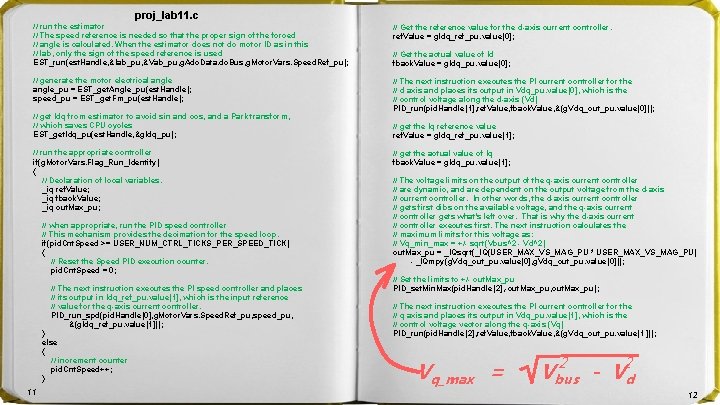 proj_lab11. c
// run the estimator
// The speed reference is needed so that the proper sign of the forced
// angle is calculated. When the estimator does not do motor ID as in this
// lab, only the sign of the speed reference is used
EST_run(estHandle, &Iab_pu, &Vab_pu, gAdcData.dcBus, gMotorVars.SpeedRef_pu);
// generate the motor electrical angle
angle_pu = EST_getAngle_pu(estHandle);
speed_pu = EST_getFm_pu(estHandle);
// get Idq from estimator to avoid sin and cos, and a Park transform,
// which saves CPU cycles
EST_getIdq_pu(estHandle, &gIdq_pu);
// run the appropriate controller
if(gMotorVars.Flag_Run_Identify)
{
// Declaration of local variables.
_iq refValue;
_iq fbackValue;
_iq outMax_pu;
// when appropriate, run the PID speed controller
// This mechanism provides the decimation for the speed loop.
if(pidCntSpeed >= USER_NUM_CTRL_TICKS_PER_SPEED_TICK)
{
// Reset the Speed PID execution counter.
pidCntSpeed = 0;
// The next instruction executes the PI speed controller and places
// its output in Idq_ref_pu.value[1], which is the input reference
// value for the q-axis current controller.
PID_run_spd(pidHandle[0], gMotorVars.SpeedRef_pu, speed_pu,
&(gIdq_ref_pu.value[1]));
}
else
{
// increment counter
pidCntSpeed++;
}
11
// Get the reference value for the d-axis current controller.
refValue = gIdq_ref_pu.value[0];
// Get the actual value of Id
fbackValue = gIdq_pu.value[0];
// The next instruction executes the PI current controller for the
// d axis and places its output in Vdq_pu.value[0], which is the
// control voltage along the d-axis (Vd)
PID_run(pidHandle[1], refValue, fbackValue, &(gVdq_out_pu.value[0]));
// get the Iq reference value
refValue = gIdq_ref_pu.value[1];
// get the actual value of Iq
fbackValue = gIdq_pu.value[1];
// The voltage limits on the output of the q-axis current controller
// are dynamic, and are dependent on the output voltage from the d-axis
// current controller. In other words, the d-axis current controller
// gets first dibs on the available voltage, and the q-axis current
// controller gets what's left over. That is why the d-axis current
// controller executes first. The next instruction calculates the
// maximum limits for this voltage as:
// Vq_min_max = +/- sqrt(Vbus^2 - Vd^2)
outMax_pu = _IQsqrt(_IQ(USER_MAX_VS_MAG_PU * USER_MAX_VS_MAG_PU)
- _IQmpy(gVdq_out_pu.value[0], gVdq_out_pu.value[0]));
// Set the limits to +/- outMax_pu
PID_setMinMax(pidHandle[2], -outMax_pu, outMax_pu);
// The next instruction executes the PI current controller for the
// q axis and places its output in Vdq_pu.value[1], which is the
// control voltage vector along the q-axis (Vq)
PID_run(pidHandle[2], refValue, fbackValue, &(gVdq_out_pu.value[1]));
Vq_max = √V²bus - V²d
12